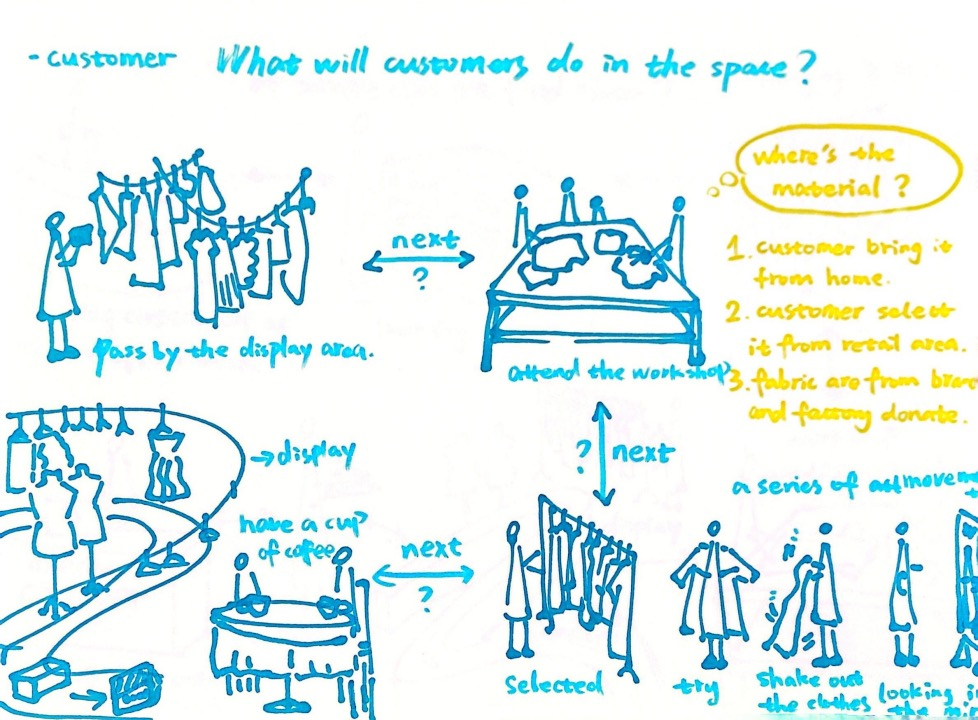 - customer What will customers do in the space?
where's the
material ?
next
?
1. customer bring it
from home.
2. customer select
it from retail area.
3. fabric are from
and factory donate.
pass by the display area.
attend the workshop
? next
→ display
a series of
have a cup
of coffee
next
?
selected
try
shake out
the clothes
looking
the